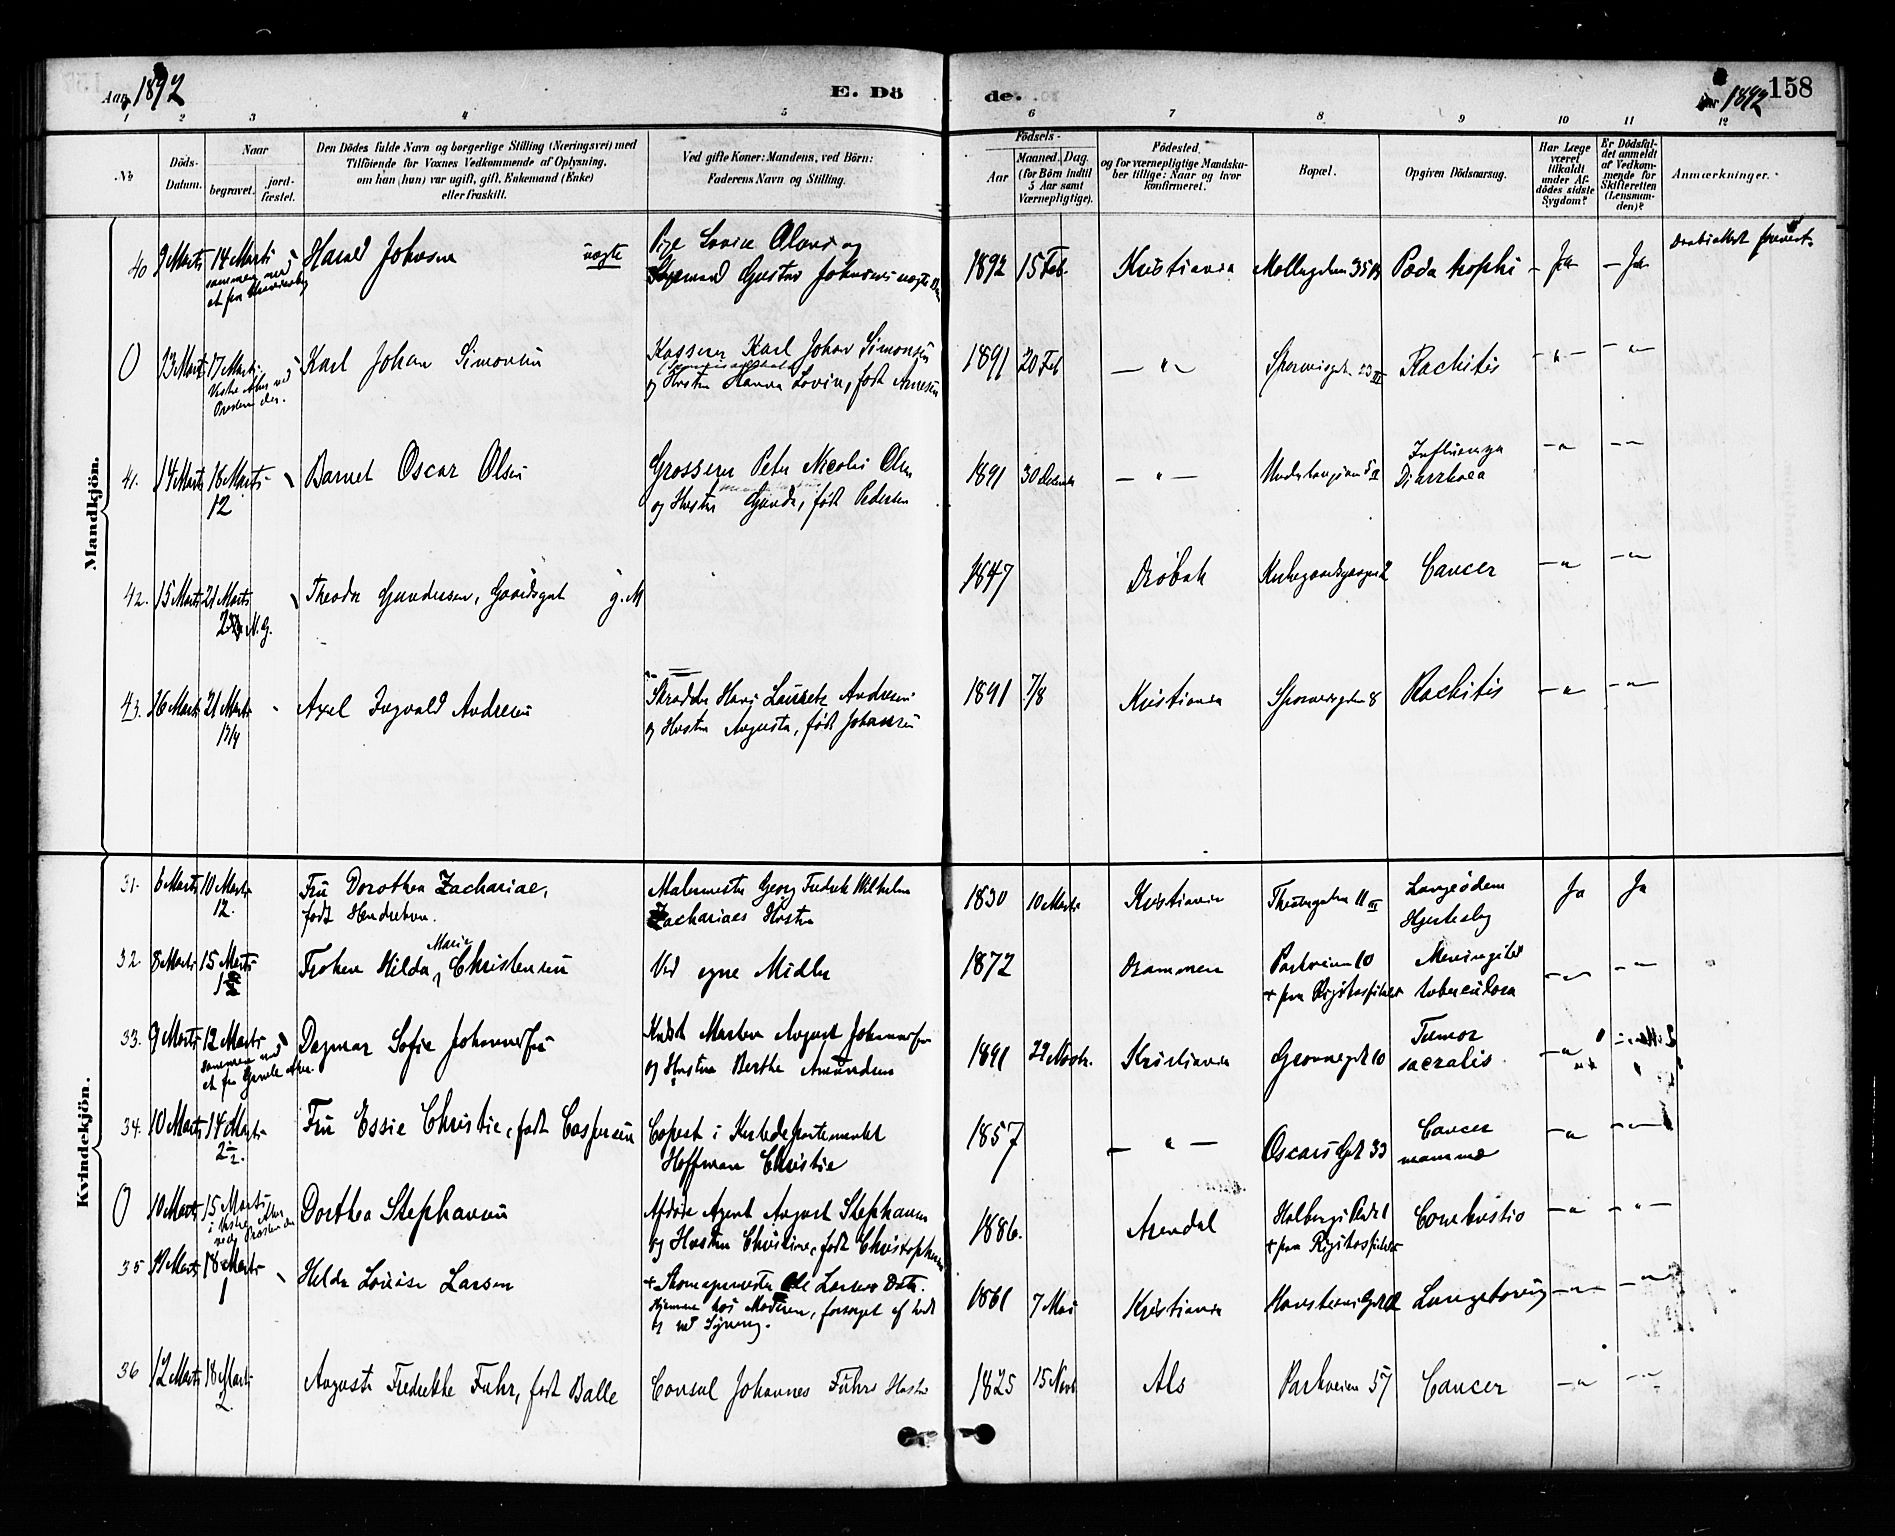 Aar 1892
E. Dö
de.
Aar 1892
158
1 2 3 4 5 6 7 8 9 10 11 12
No
Döds-
Datum.
Naar
begravet.
jord-
fæstet.
Den Dödes fulde Navn og borgerlige Stilling (Næringsvei) med
Tilföiende for Voxnes Vedkommende af Oplysning,
om han (hun) var ugift, gift, Enkemand (Enke)
eller fraskilt.
Ved gifte Koner: Mandens, ved Börn:
Faderens Navn og Stilling.
Födsels-
Aar
Maaned. Dag.
(for Börn indtil
5 Aar samt
Værnepligtige).
Födested,
og for værnepligtige Mandska-
ber tillige: Naar og hvor
konfirmeret.
Bopæl.
Opgiven Dödsaarsag.
Har Læge
været
tilkaldt
under Af-
dödes sidste
Sygdom?
Er Dödsfal-
det anmeldt
af Vedkom-
mende for
Skifteretten
(Lensman-
den)?
Anmærkninger.
Mandkjön.
40 9 Marts 14 Marts Harald Johnsen uægte
sammen med
et fra
Pige Lovise Olava og
Gustav Johnsens uægte Barn
1892 15 Feb. Kristiania Møllergaden 35 Pæda trophi - Ja - Ja
0 13 Marts 17 Marts Karl Johan Simonsen
Vestre Aker ved
Presten der.
Kasserer Karl Johan Simonsen
og Hustru Hanna Lovise, født Arnesen
1891 20 Feb — " — Sporveisgd. 23 III Rachitis - " - - " -
41. 14 Marts 16 Marts Barnet Oscar Olsen
12
Grosserer Peter Nicolai Olsen
og Hustru Gunda, født Pedersen
1891 30 December — " — II Influenza
Diarrhoea - " - " -
42. 15 Marts 21 Marts Theodor Gundersen, Gaardsgut g. M
1847 Drøbak Kirkegaardsgangen 2 Cancer - " - " -
43. 16 Marts 21 Marts Axel Ingvald Andresen
17/4
Skrædder Hans Lauritz Andresen
og Hustru Augusta, født Johansen
1891 7/8 Kristiania Sporveisgaden 8 Rachitis - " - " -
Kvindekjön.
31. 6 Marts 10 Marts Fru Dorothea Zachariae,
12. født Hendriksen.
Malermester Georg Fredrik Wilhelm
Zachariaes Hustru
1830 10 Marts Kristiania Theresegaden 11 III Lungeødem
Hjerteslag Ja Ja
32. 8 Marts 15 Marts Frøken Hilda Marie Christensen
Ved egne Midler
1872 Drammen Parkveien 10
+ paa Rigshospitalet
Meningitis
tuberculosa - " - " -
33. 9 Marts 12 Marts Dagmar Sofie Johannessen
sammen med
et fra Gamle Aker.
Kudsk Marten August Johannessen
og Hustru Berthe Amundsen
1891 29 Novbr. Kristiania Grønnegd 10 Tumor
sacralis - "
34. 10 Marts 14 Marts Fru Essie Christie, født Caspersen
2½.
Copist i Kirkedepartementet
Hoffman Christie
1857 — " — Oscars Gd 33 Cancer
mammæ - " - " -
0 10 Marts 15 Marts Dorthea Stephansen
i Vestre Aker
ved Presten der
Afdøde Agent August Stephansen
og Hustru Christine, født Christophersen
1886. Arendal Holbergs Plads 1
+ paa Rigshospitalet
Combustio - " - " -
35 11 Marts 18 Marts Helda Louise Larsen
1
+ Skomagermester Ole Larsens Dat.
Hjemme hos Moderen, forsørget af hende
og ved Syning.
1861 7 Mai Kristiania Lungetæring - " - " -
36 12 Marts 18 Marts Augusta Fredrikke Fuhr, født Balle
2.
Consul Johannes Fuhrs Hustru
1825 15 Novb Als Parkveien 57 Cancer - " - " -